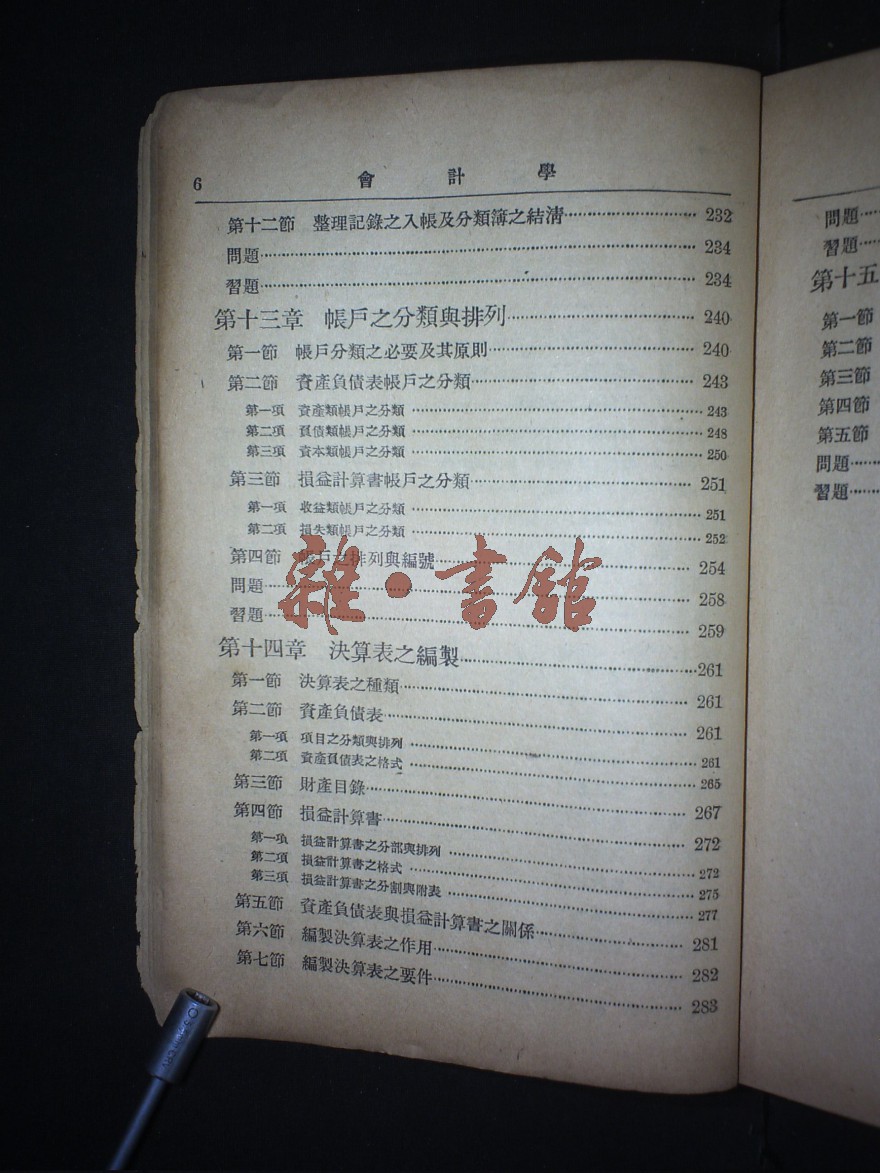 6 會 計 學
第十二節 整理記錄之入帳及分類簿之結淸 232
問題 234
習題 234
第十三章 帳戶之分類與排列 240
第一節 帳戶分類之必要及其原則 240
第二節 資產負債表帳戶之分類 243
第一項 資產類帳戶之分類 243
第二項 負債類帳戶之分類 248
第三項 資本類帳戶之分類 250
第三節 損益計算書帳戶之分類 251
第一項 收益類帳戶之分類 251
第二項 損失類帳戶之分類 252
第四節 帳戶之排列與編號 254
問題 258
習題 259
第十四章 決算表之編製 261
第一節 決算表之種類 261
第二節 資產負債表 261
第一項 項目之分類與排列 261
第二項 資產負債表之格式 265
第三節 財產目錄 267
第四節 損益計算書 272
第一項 損益計算書之分部與排列 272
第二項 損益計算書之格式 275
第三項 損益計算書之分割與附表 277
第五節 資產負債表與損益計算書之關係 281
第六節 編製決算表之作用 282
第七節 編製決算表之要件 283
雜·書館
問題
習題
第十五
第一節
第二節
第三節
第四節
第五節
問題
習題